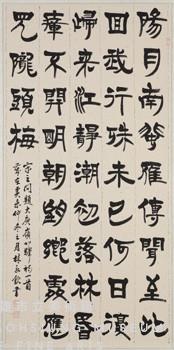 陽月南飛雁傳聞至此
回我行殊未已何日復
歸來江靜潮初落林昏
瘴不開明朝望鄉處應
見隴頭梅
宋之問題大庾嶺北驛詩一首
歲在癸未仲冬之月林書